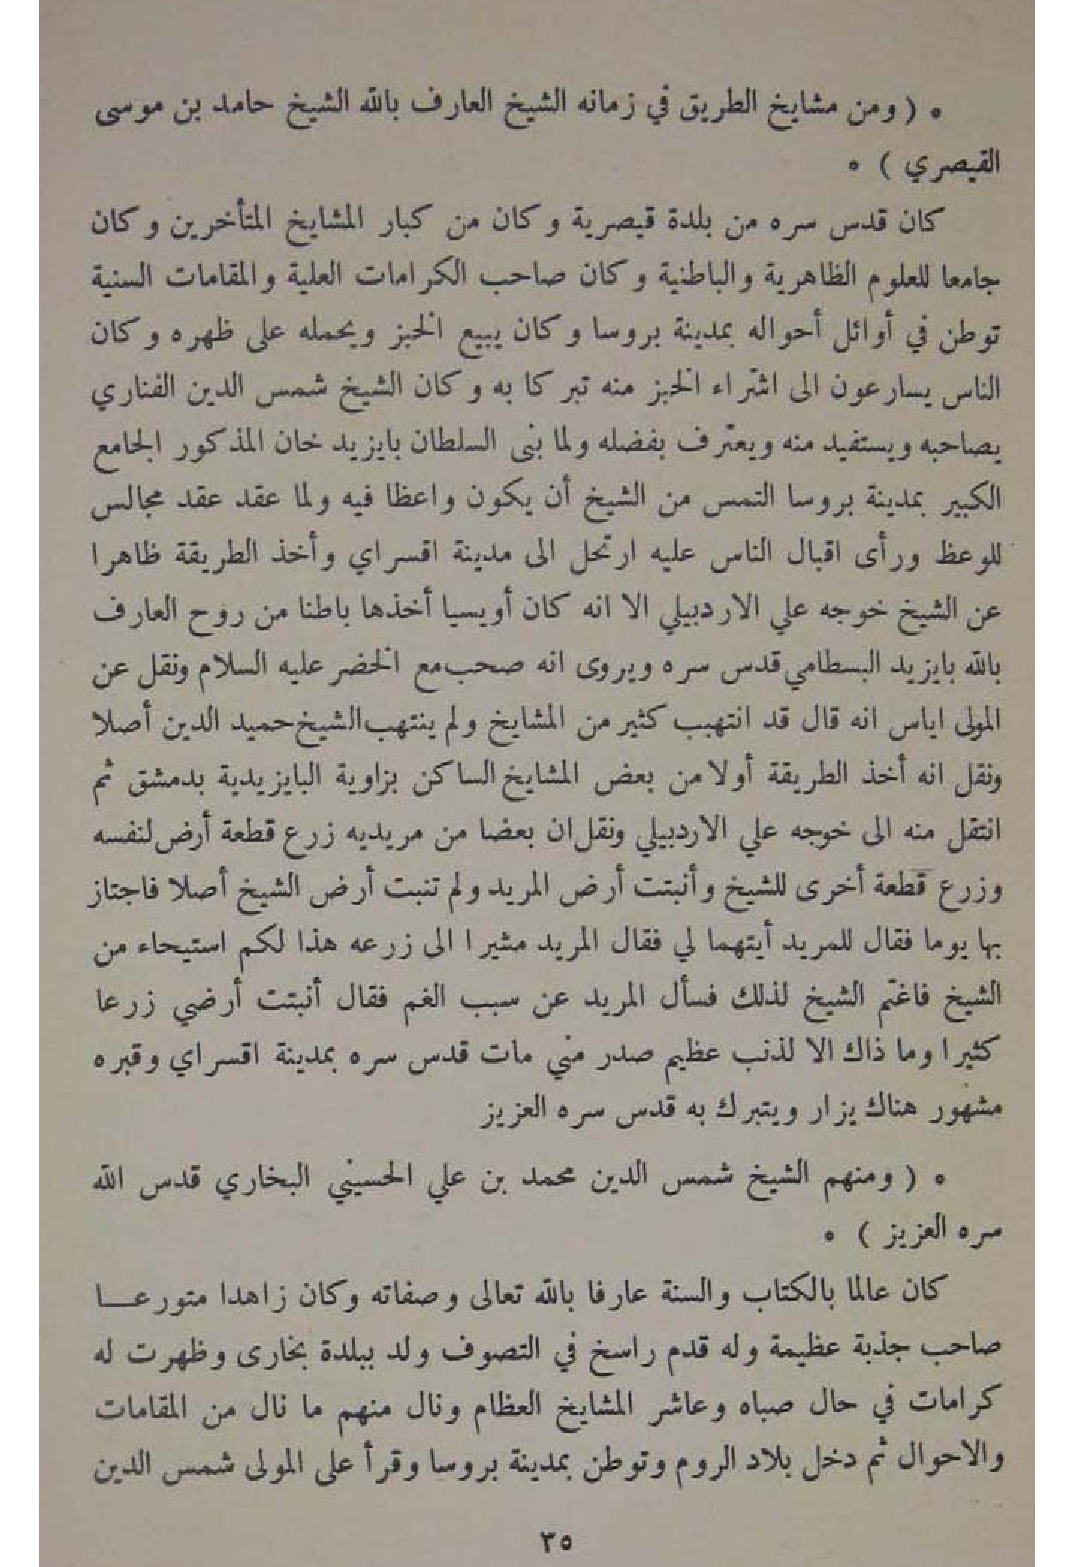 * ( ومن مشايخ الطريق في زمانه الشيخ العارف بالله الشيخ حامد بن موسى
القيصري ) *
كان قدس سره من بلدة قيصرية وكان من كبار المشايخ المتأخرين وكان
جامعا للعلوم الظاهرية والباطنية وكان صاحب الكرامات العلية والمقامات السنية
توطن في أوائل أحواله بمدينة بروسا وكان يبيع الخبز ويحمله على ظهره وكان
الناس يسارعون الى اشتراء الخبز منه تبركا به وكان الشيخ شمس الدين الفناري
يصاحبه ويستفيد منه ويعترف بفضله ولما بنى السلطان بايزيد خان المذكور الجامع
الكبير بمدينة بروسا التمس من الشيخ أن يكون واعظا فيه ولما عقد عقد مجالس
للوعظ ورأى اقبال الناس عليه ارتحل الى مدينة اقسراي وأخذ الطريقة ظاهرا
عن الشيخ خوجه علي الاردبيلي الا انه كان أويسيا أخذها باطنا من روح العارف
بالله بايزيد البسطامي قدس سره ويروى انه صحب مع الخضر عليه السلام ونقل عن
المولى اياس انه قال قد انتهب كثير من المشايخ ولم ينتهب الشيخ حميد الدين أصلا
ونقل انه أخذ الطريقة أولا من بعض المشايخ الساكن بزاوية البايزيدية بدمشق ثم
انتقل منه الى خوجه علي الاردبيلي ونقل ان بعضا من مريديه زرع قطعة أرض لنفسه
وزرع قطعة أخرى للشيخ وأنبتت أرض المريد ولم تنبت أرض الشيخ أصلا فاجتاز
بها يوما فقال للمريد أيتهما لي فقال المريد مشيرا الى زرعه هذا لكم استيحاء من
الشيخ فاغتم الشيخ لذلك فسأل المريد عن سبب الغم فقال أنبتت أرضي زرعا
كثيرا وما ذاك الا لذنب عظيم صدر مني مات قدس سره بمدينة اقسراي وقبره
مشهور هناك يزار ويتبرك به قدس سره العزيز
* ( ومنهم الشيخ شمس الدين محمد بن علي الحسيني البخاري قدس الله
سره العزيز ) *
كان عالما بالكتاب والسنة عارفا بالله تعالى وصفاته وكان زاهدا متورعـــا
صاحب جذبة عظيمة وله قدم راسخ في التصوف ولد ببلدة بخارى وظهرت له
كرامات في حال صباه وعاشر المشايخ العظام ونال منهم ما نال من المقامات
والاحوال ثم دخل بلاد الروم وتوطن بمدينة بروسا وقرأ على المولى شمس الدين
٣٥